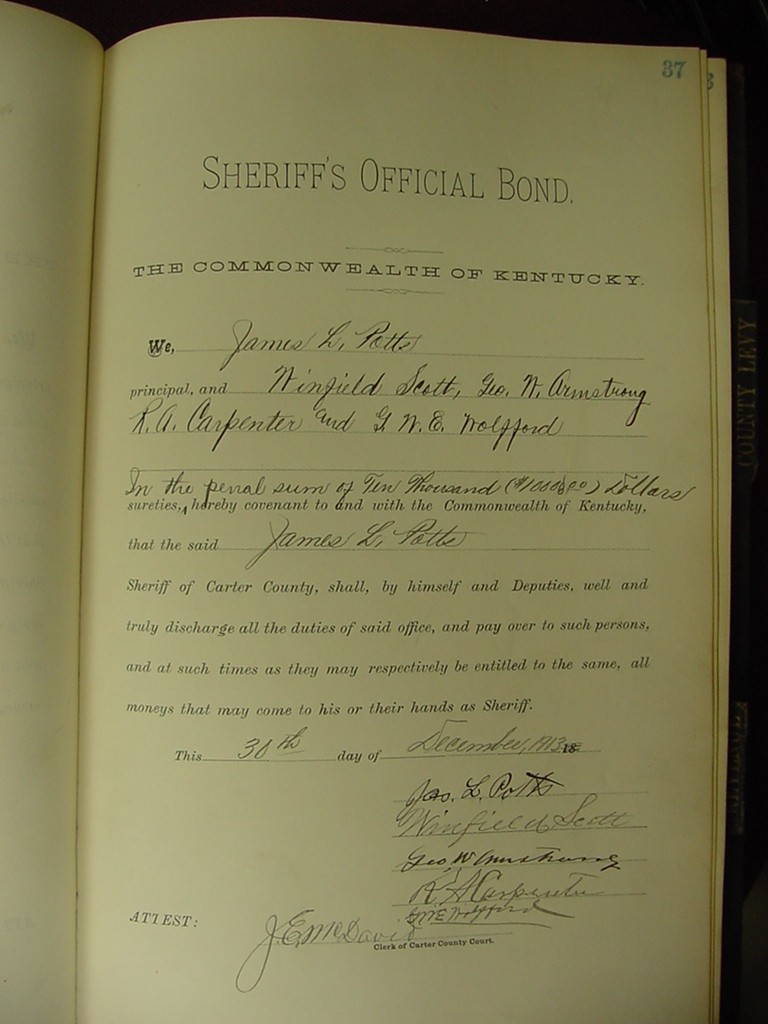 37
SHERIFF'S OFFICIAL BOND.
THE COMMONWEALTH OF KENTUCKY.
We, James L. Potts
principal, and Winfield Scott, Geo. W. Armstrong
R. A. Carpenter and G. W. E. Wolfford
In the penal sum of Ten Thousand ($10000.00) Dollars
sureties, hereby covenant to and with the Commonwealth of Kentucky,
that the said James L. Potts
Sheriff of Carter County, shall, by himself and Deputies, well and
truly discharge all the duties of said office, and pay over to such persons,
and at such times as they may respectively be entitled to the same, all
moneys that may come to his or their hands as Sheriff.
This 30th day of December, 1913 18
Jas. L. Potts
Winfield Scott
Geo W Armstrong
R. A Carpenter
G W E Wolfford
ATTEST: J. E. McDavid
Clerk of Carter County Court.
COUNTY LEVY